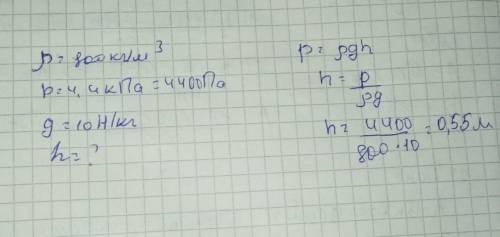 ρ = 800 кг/м³
p = 4,4 кПа = 4400 Па
g = 10 Н/кг
h = ?
p = ρgh
h = p/ρg
h = 4400/800·10 = 0,55 м